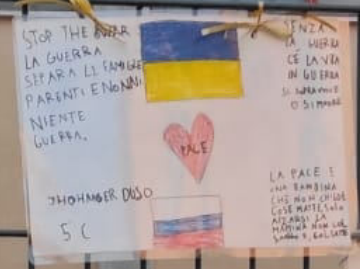 STOP THE WAR
LA GUERRA
SEPARA LE FAMIGLIE
PARENTI E NONNI
NIENTE
GUERRA.
SENZA
LA GUERRA
C'È LA VITA
IN GUERRA
SI
O SI MUORE
PACE
5 C
LA PACE È
UNA BAMBINA
CHE NON CHIEDE
COSE MATTE, SOLO
ALZARSI LA
MATTINA NON COL